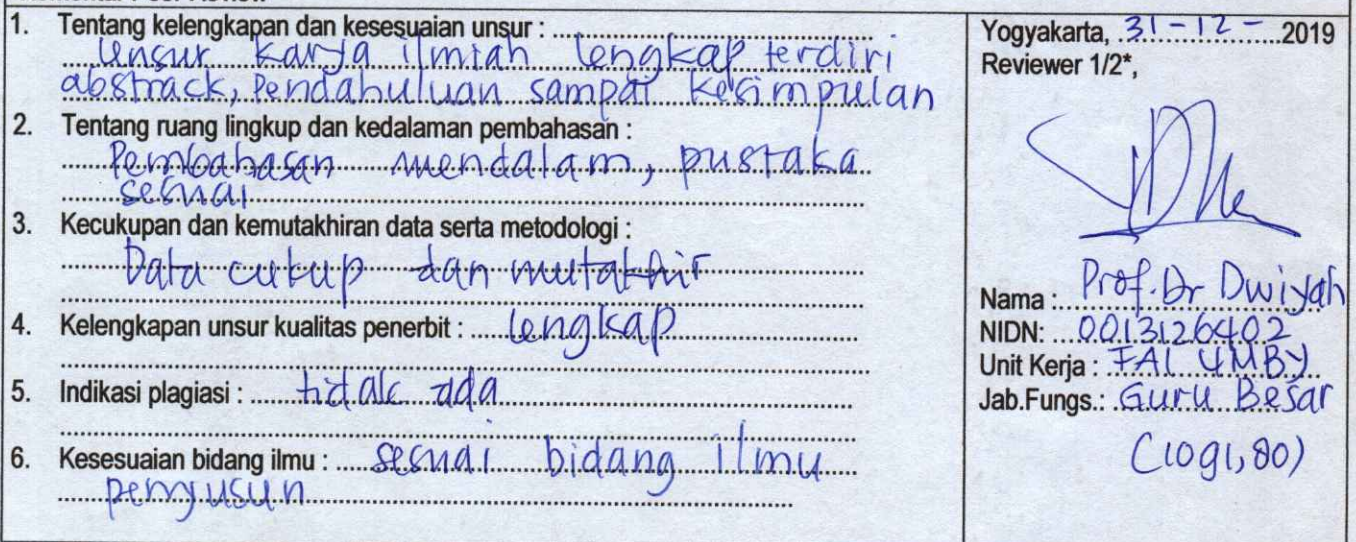 1. Tentang kelengkapan dan kesesuaian unsur :
Unsur karya ilmiah lengkap terdiri
abstrack, Pendahuluan sampai kesimpulan
2. Tentang ruang lingkup dan kedalaman pembahasan :
Pembahasan mendalam, pustaka
sesuai
3. Kecukupan dan kemutakhiran data serta metodologi :
Data cukup dan mutakhir
4. Kelengkapan unsur kualitas penerbit : lengkap
5. Indikasi plagiasi : tidak ada
6. Kesesuaian bidang ilmu : sesuai bidang ilmu
penyusun
Yogyakarta, 31-12-2019
Reviewer 1/2*,
Nama : Prof. Dr Dwiyah
NIDN: 0013126402
Unit Kerja : FAI UMBY
Jab.Fungs.: Guru Besar
(1091,80)